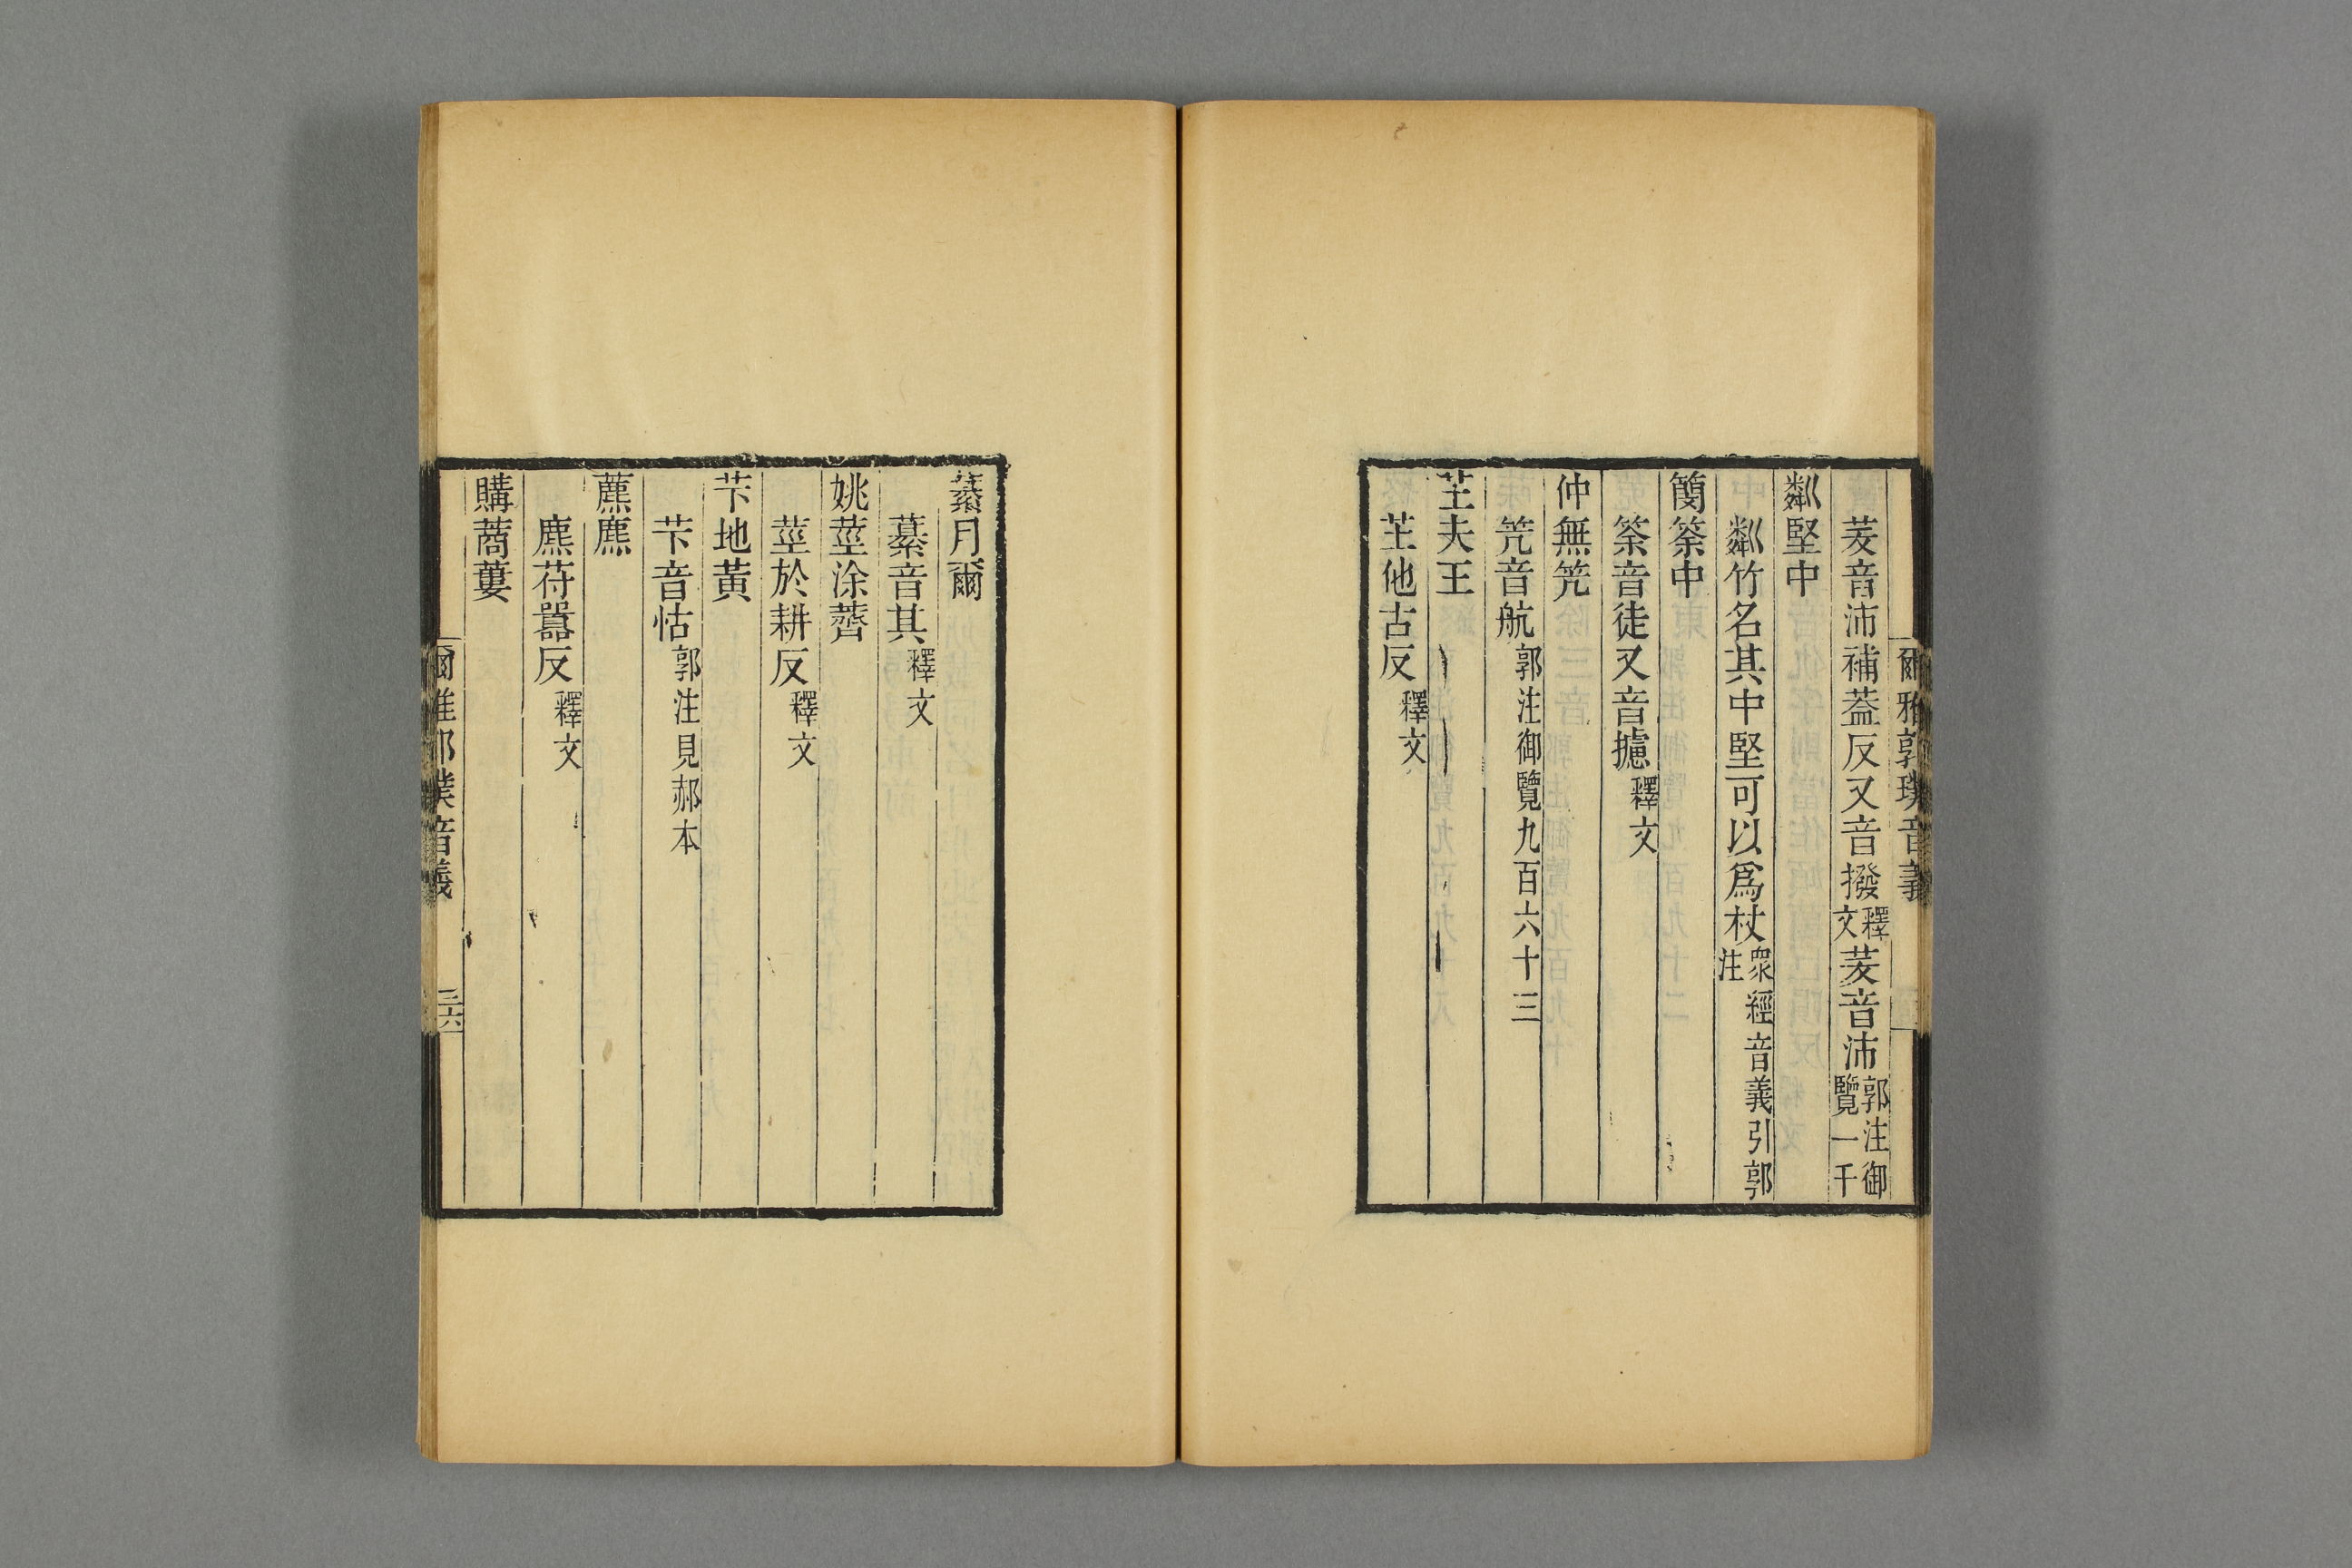 爾雅郭璞音義
茇音沛補蓋反又音撥釋文茇音沛郭注御覽一千
粼堅中
粼竹名其中堅可以爲杖衆經音義引郭注
簢筡中
筡音徒又音攄釋文
仲無笐
笐音航郭注御覽九百六十三
芏夫王
芏他古反釋文
藄月爾
藄音其釋文
姚莖涂薺
莖於耕反釋文
芐地黃
芐音怙郭注見郝本
藨麃
麃苻嚻反釋文
購蔏蔞
爾雅郭璞音義
二六